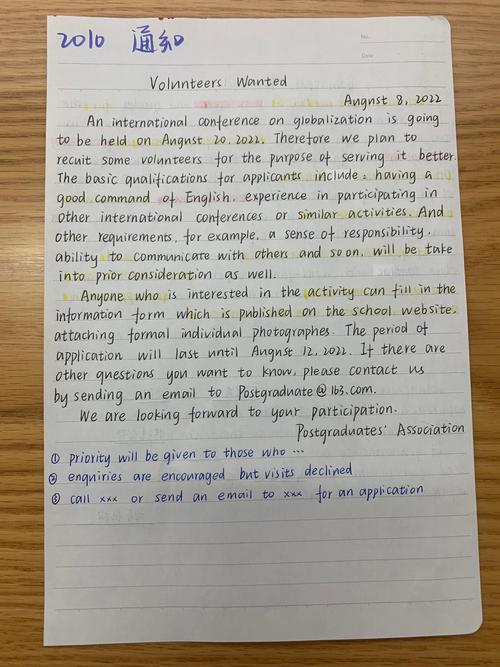 2010 通知
No.
Date
Volunteers Wanted
August 8, 2022
An international conference on globalization is going
to be held on August 20, 2022. Therefore we plan to
recuit some volunteers for the purpose of serving it better.
The basic qualifications for applicants include: having a
good command of English, experience in participating in
other international conferences or similar activities. And
other requirements, for example, a sense of responsibility,
ability to communicate with others and so on, will be take
into prior consideration as well.
Anyone who is interested in the activity can fill in the
information form which is published on the school website,
attaching formal individual photographes. The period of
application will last until August 12, 2022. If there are
other questions you want to know, please contact us
by sending an email to Postgraduate@163.com.
We are looking forward to your participation.
Postgraduates' Association
① priority will be given to those who ...
② enquiries are encouraged but visits declined
③ call xxx or send an email to xxx for an application